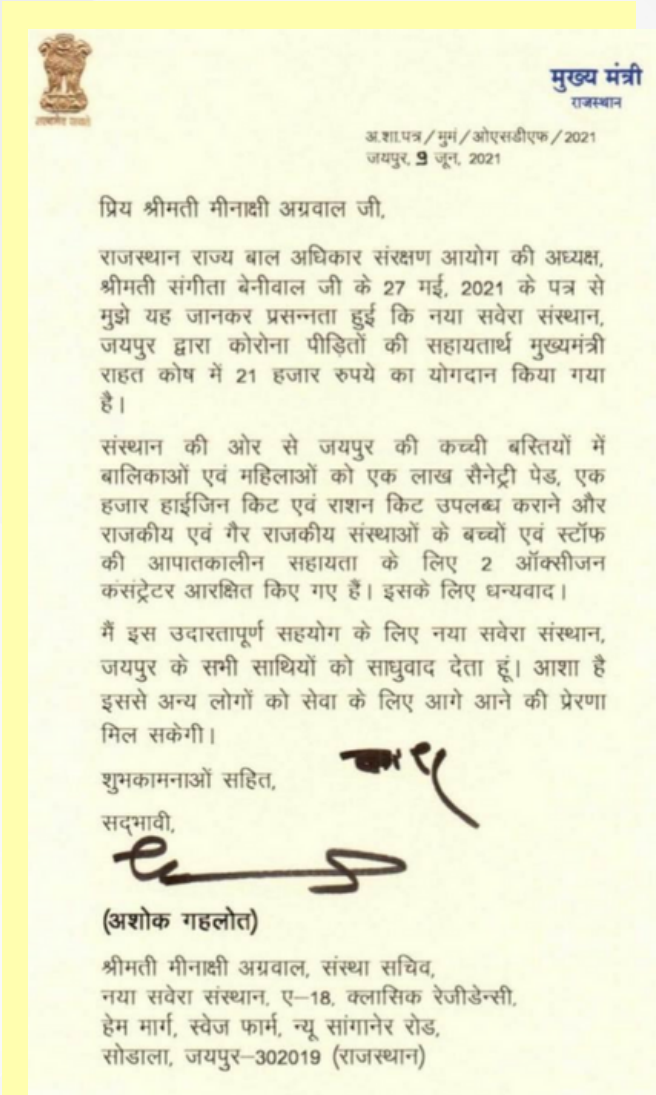 मुख्य मंत्री
राजस्थान
अ.शा.पत्र/मुमं/ओएसडीएफ/2021
जयपुर, 9 जून, 2021
प्रिय श्रीमती मीनाक्षी अग्रवाल जी,
राजस्थान राज्य बाल अधिकार संरक्षण आयोग की अध्यक्ष,
श्रीमती संगीता बेनीवाल जी के 27 मई, 2021 के पत्र से
मुझे यह जानकर प्रसन्नता हुई कि नया सवेरा संस्थान,
जयपुर द्वारा कोरोना पीड़ितों की सहायतार्थ मुख्यमंत्री
राहत कोष में 21 हजार रुपये का योगदान किया गया
है।
संस्थान की ओर से जयपुर की कच्ची बस्तियों में
बालिकाओं एवं महिलाओं को एक लाख सैनेट्री पेड, एक
हजार हाईजिन किट एवं राशन किट उपलब्ध कराने और
राजकीय एवं गैर राजकीय संस्थाओं के बच्चों एवं स्टॉफ
की आपातकालीन सहायता के लिए 2 ऑक्सीजन
कंसंट्रेटर आरक्षित किए गए हैं। इसके लिए धन्यवाद।
मैं इस उदारतापूर्ण सहयोग के लिए नया सवेरा संस्थान,
जयपुर के सभी साथियों को साधुवाद देता हूं। आशा है
इससे अन्य लोगों को सेवा के लिए आगे आने की प्रेरणा
मिल सकेगी।
शुभकामनाओं सहित,
सद्भावी,
(अशोक गहलोत)
श्रीमती मीनाक्षी अग्रवाल, संस्था सचिव,
नया सवेरा संस्थान, ए–18, क्लासिक रेजीडेन्सी,
हेम मार्ग, स्वेज फार्म, न्यू सांगानेर रोड,
सोडाला, जयपुर–302019 (राजस्थान)